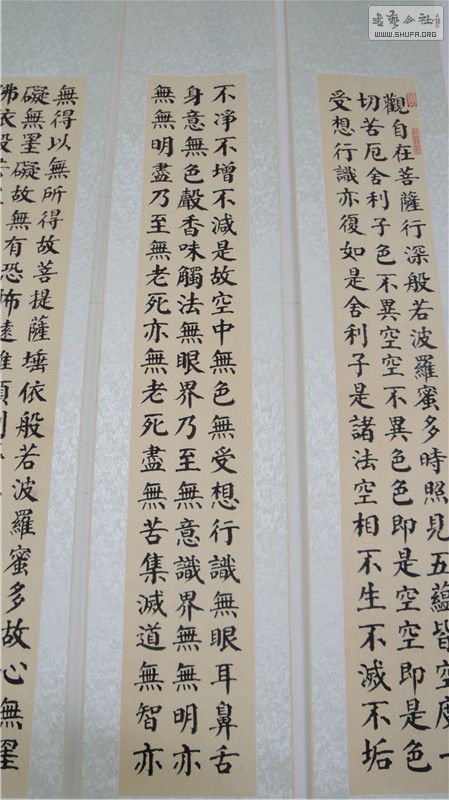 書藝公社
WWW.SHUFA.ORG
觀自在菩薩行深般若波羅蜜多時照見五蘊皆空度一
切苦厄舍利子色不異空空不異色色即是空空即是色
受想行識亦復如是舍利子是諸法空相不生不滅不垢
不淨不增不減是故空中無色無受想行識無眼耳鼻舌
身意無色聲香味觸法無眼界乃至無意識界無無明亦
無無明盡乃至無老死亦無老死盡無苦集滅道無智亦
無得以無所得故菩提薩埵依般若波羅蜜多故心無罣
礙無罣礙故無有恐怖遠離顛倒
佛依般